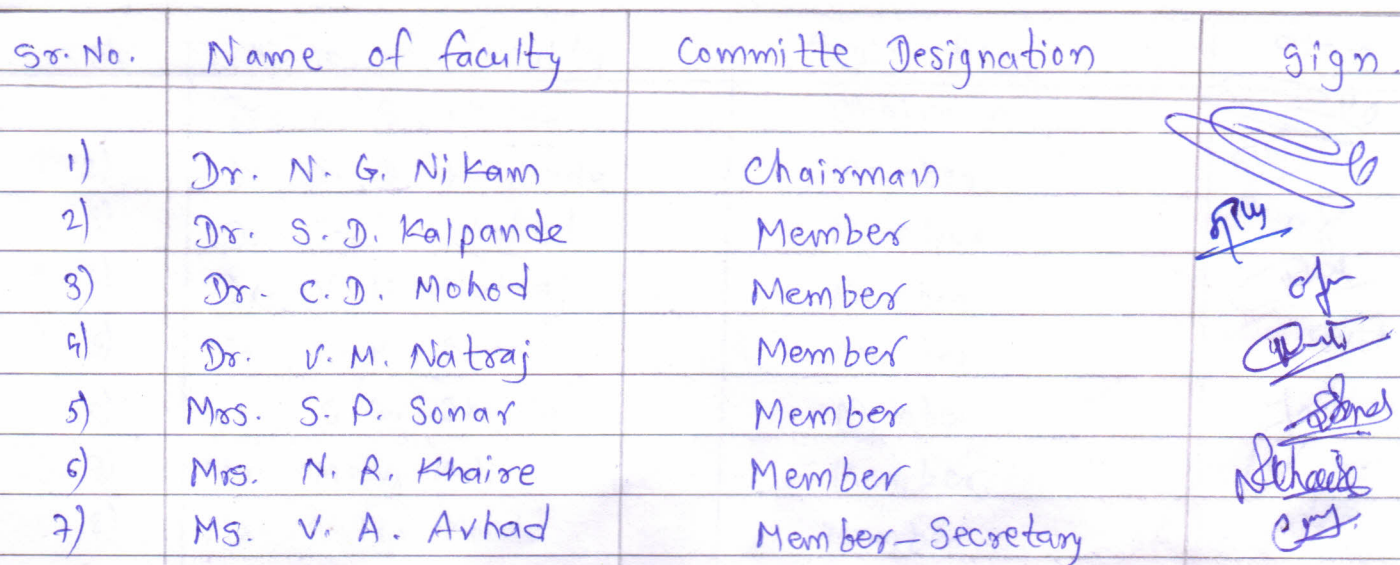 Sr. No. Name of faculty Committe Designation Sign.
1) Dr. N. G. Nikam Chairman
2) Dr. S. D. Kalpande Member
3) Dr. C. D. Mohod Member
4) Dr. V. M. Natraj Member
5) Mrs. S. P. Sonar Member
6) Mrs. N. R. Khaire Member
7) Ms. V. A. Avhad Member-Secretary